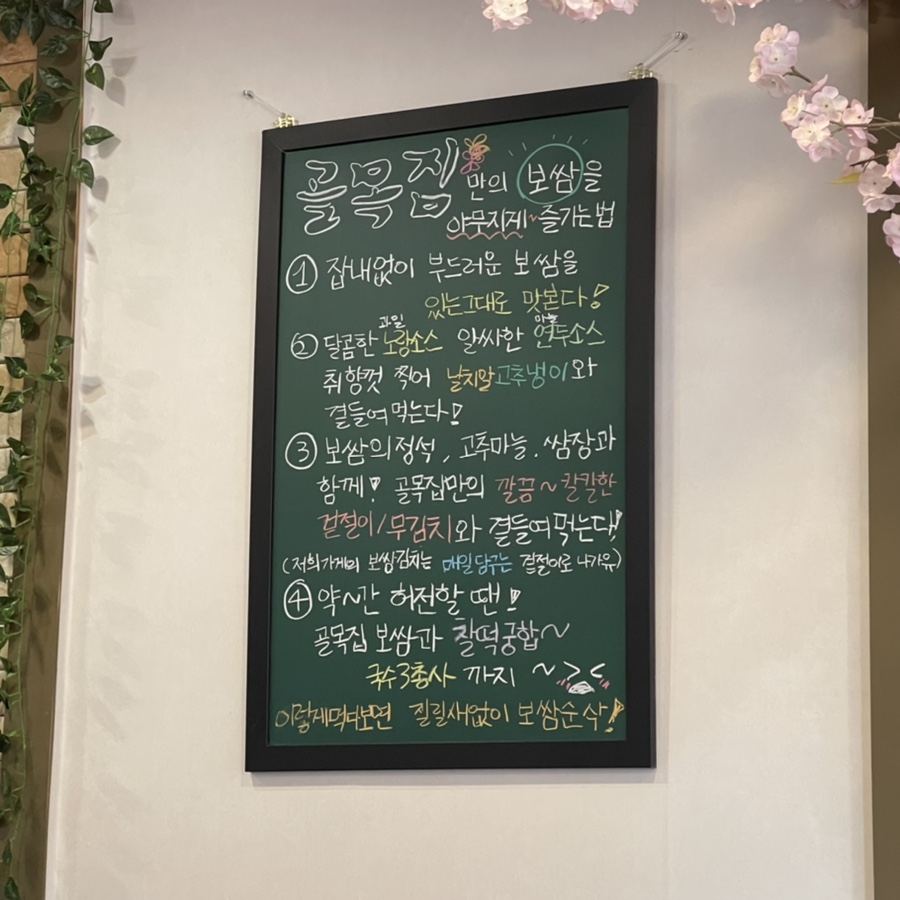 골목집만의 보쌈을
야무지게~즐기는법
① 잡내없이 부드러운 보쌈을
있는그대로 맛본다!
과일 마늘
② 달콤한 노랑소스 알싸한 연두소스
취향껏 찍어 날치알고추냉이와
곁들여먹는다!
③ 보쌈의정석, 고추마늘. 쌈장과
함께! 골목집만의 깔끔~칼칼한
겉절이/무김치와 곁들여먹는다!
(저희가게의 보쌈김치는 매일담구는 겉절이로 나가유)
④ 약~간 허전할 땐!
골목집 보쌈과 찰떡궁합~
국수3총사 까지 ~><
이렇게먹다보면 질릴새없이 보쌈순삭!